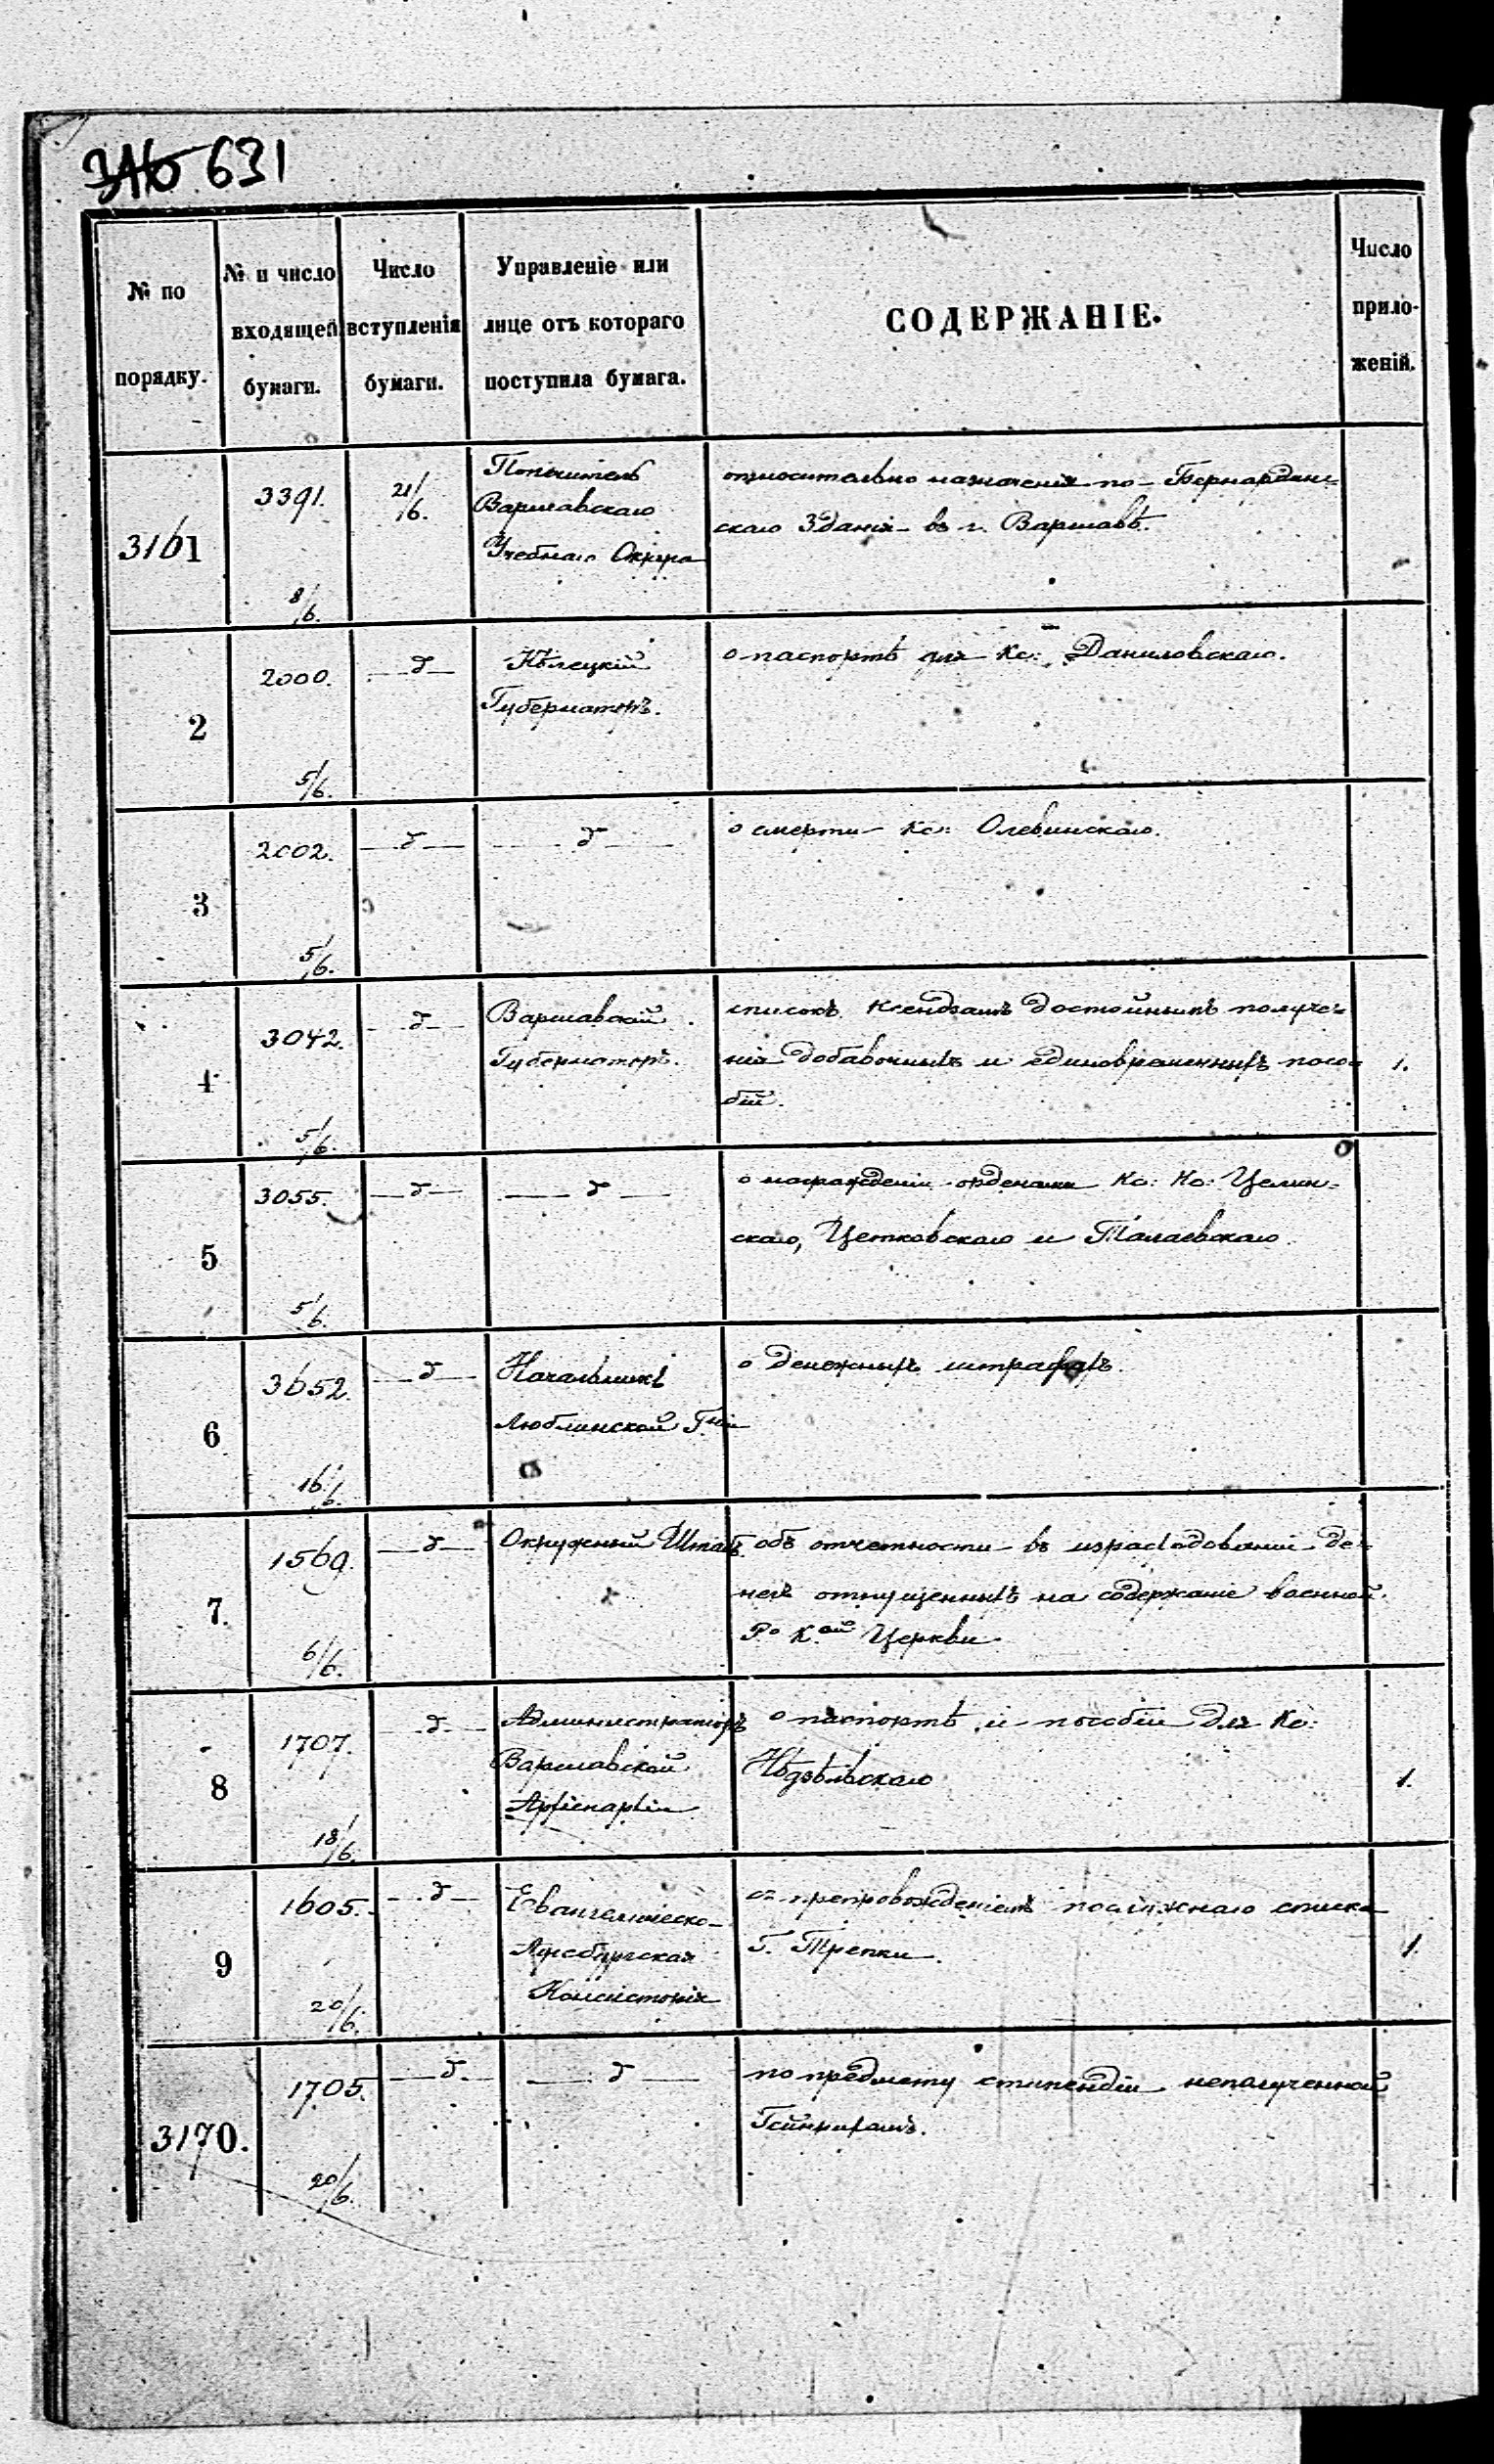 316 631
№ по порядку.
№ и число входящей бумаги.
Число вступленія бумаги.
Управленіе или лице отъ котораго поступила бумага.
СОДЕРЖАНІЕ.
Число приложеній.
3161
3391.
8/6.
21/6.
Попечитель
Варшавскаго
Учебнаго Округа
относительно назначенія по-Бернардин=
скаго Зданія въ г. Варшавѣ.
2
2000.
5/6.
—д—
Кѣлецкій
Губернаторъ.
о паспортѣ для Кс: Даниловскаго.
3
2002.
5/6.
—д—
—д—
о смерти Кс: Олевинскаго.
4
3042.
5/6.
—д—
Варшавскій
Губернаторъ.
списокъ ксендзамъ достойнымъ получе=
нія добавочныхъ и единовременныхъ посо=
бій.
1.
5
3055.
5/6.
—д—
—д—
о награжденіи орденами Кс: Кс:
скаго, Цетковскаго и
6
3652.
16/6.
—д—
Начальникъ
Люблинской Г.ніи
о денежныхъ штрафахъ.
7.
1569.
6/6.
—д—
Окружный Штабъ.
объ отчетности въ израсходованіи де=
негъ отпущенныхъ на содержаніе военной
Р.о К.ой Церкви.
8
1707.
18/6.
—д—
Администраторъ
Варшавской
Архіепархіи
о паспортѣ и пособіи для Кс:
1.
9
1605.
20/6.
—д—
Евангелическо-
Аугсбургская
Консисторія
съ препровожденіемъ послужнаго списка
Г. Трепки.
1.
3170.
1705.
20/6.
—д—
—д—
по предмету стипендіи неполученной
Гейнрихомъ.